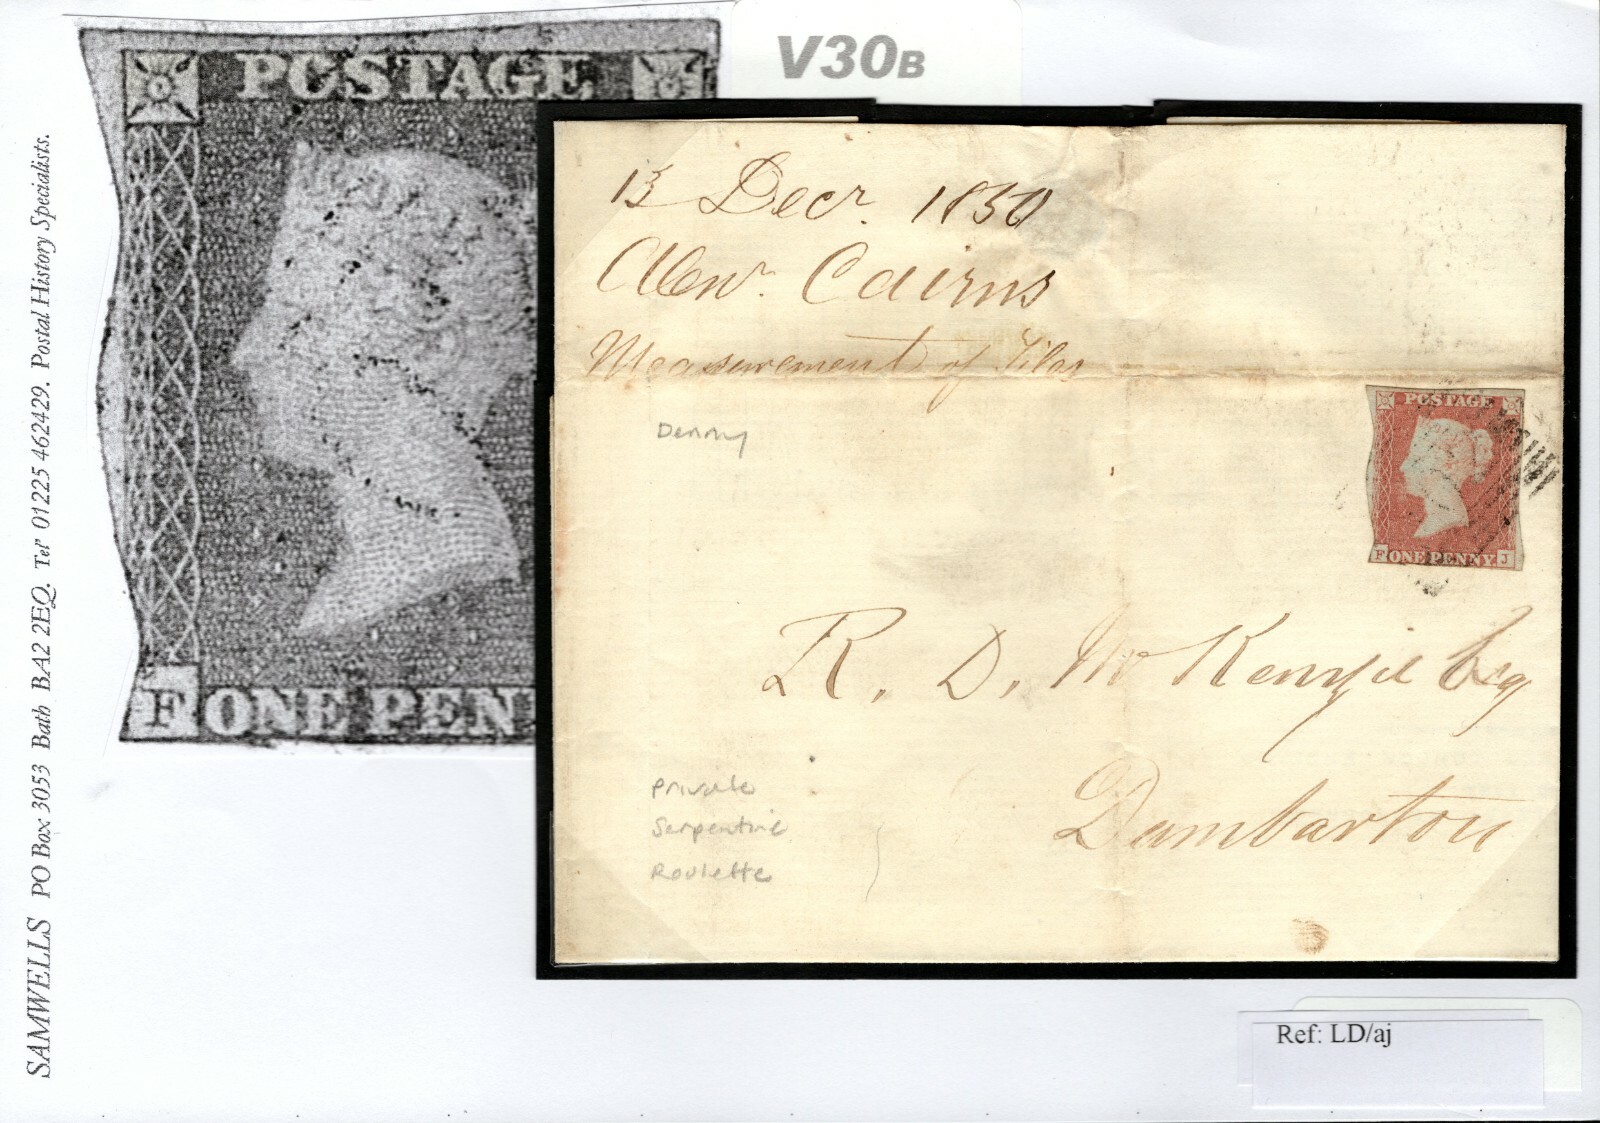 SAMWELLS PO Box 3053 Bath BA2 2EQ. Tel 01225 462429. Postal History Specialists.
POSTAGE
F ONE PEN
V30B
13 Decr. 1850
Alexr. Cairns
Measurement of Tiles
Denny
POSTAGE
F ONE PENNY J
R. D. McKenzie Esq
Dumbarton
Private
Serpentine
Roulette
Ref: LD/aj